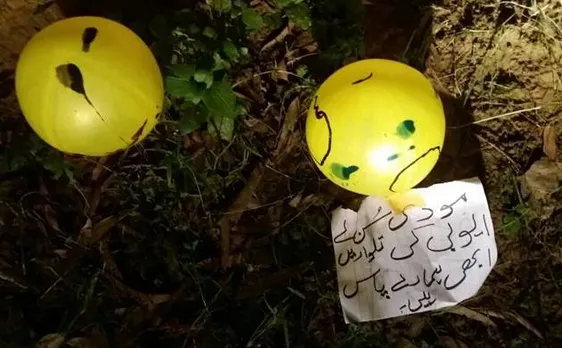 مودی سن لے
ایوبی کی تلواریں
ابھی ہمارے پاس
ہیں۔